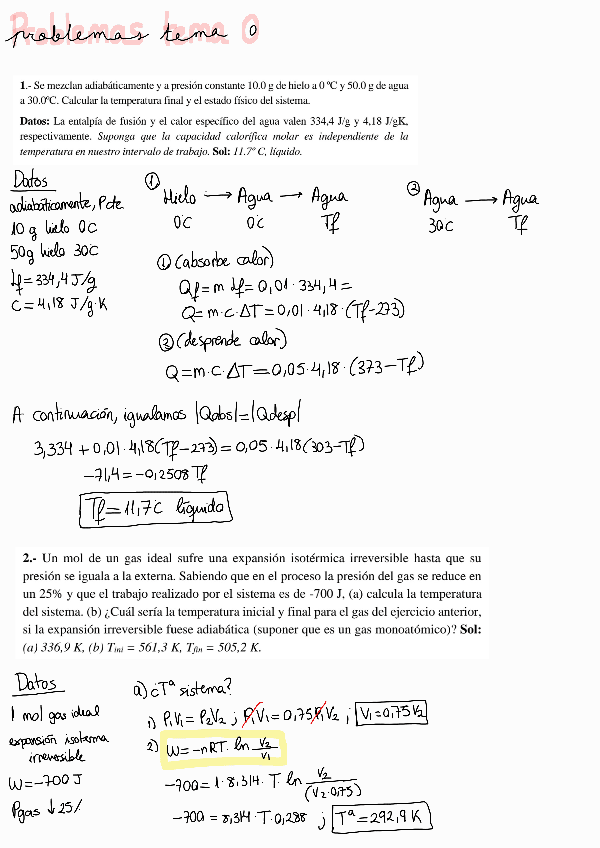 Problemas tema 0
problemas tema 0
1.- Se mezclan adiabáticamente y a presión constante 10.0 g de hielo a 0 ºC y 50.0 g de agua
a 30.0ºC. Calcular la temperatura final y el estado físico del sistema.
Datos: La entalpía de fusión y el calor específico del agua valen 334,4 J/g y 4,18 J/gK,
respectivamente. Suponga que la capacidad calorífica molar es independiente de la
temperatura en nuestro intervalo de trabajo. Sol: 11.7º C, líquido.
Datos
adiabáticamente, Pcte
10 g hielo 0ºC
50g hielo 30ºC
Lf = 334,4 J/g
C = 4,18 J/g·K
① Hielo → Agua → Agua
0ºC 0ºC Tf
② Agua → Agua
30ºC Tf
① (absorbe calor)
Qf = m Lf = 0,01 · 334,4 =
Q = m·c·ΔT = 0,01 · 4,18 · (Tf-273)
② (desprende calor)
Q = m·c·ΔT = 0,05·4,18·(373-Tf)
A continuación, igualamos |Qabs| = |Qdesp|
3,334 + 0,01·4,18(Tf-273) = 0,05·4,18(303-Tf)
-71,4 = -0,2508 Tf
Tf = 11,7ºC líquido
2.- Un mol de un gas ideal sufre una expansión isotérmica irreversible hasta que su
presión se iguala a la externa. Sabiendo que en el proceso la presión del gas se reduce en
un 25% y que el trabajo realizado por el sistema es de -700 J, (a) calcula la temperatura
del sistema. (b) ¿Cuál sería la temperatura inicial y final para el gas del ejercicio anterior,
si la expansión irreversible fuese adiabática (suponer que es un gas monoatómico)? Sol:
(a) 336,9 K, (b) Tini = 561,3 K, Tfin = 505,2 K.
Datos
1 mol gas ideal
expansión isoterma
irreversible
W = -700 J
Pgas ↓ 25%
a) ¿Tª sistema?
1) P₁V₁ = P₂V₂ ; P₁V₁ = 0,75P₁V₂ ; V₁ = 0,75V₂
2) W = -nRT · ln V₂/V₁
-700 = 1·8,314· T · ln V₂/(V₂·0,75)
-700 = 8,314 · T · 0,288 ; Tª = 292,9 K